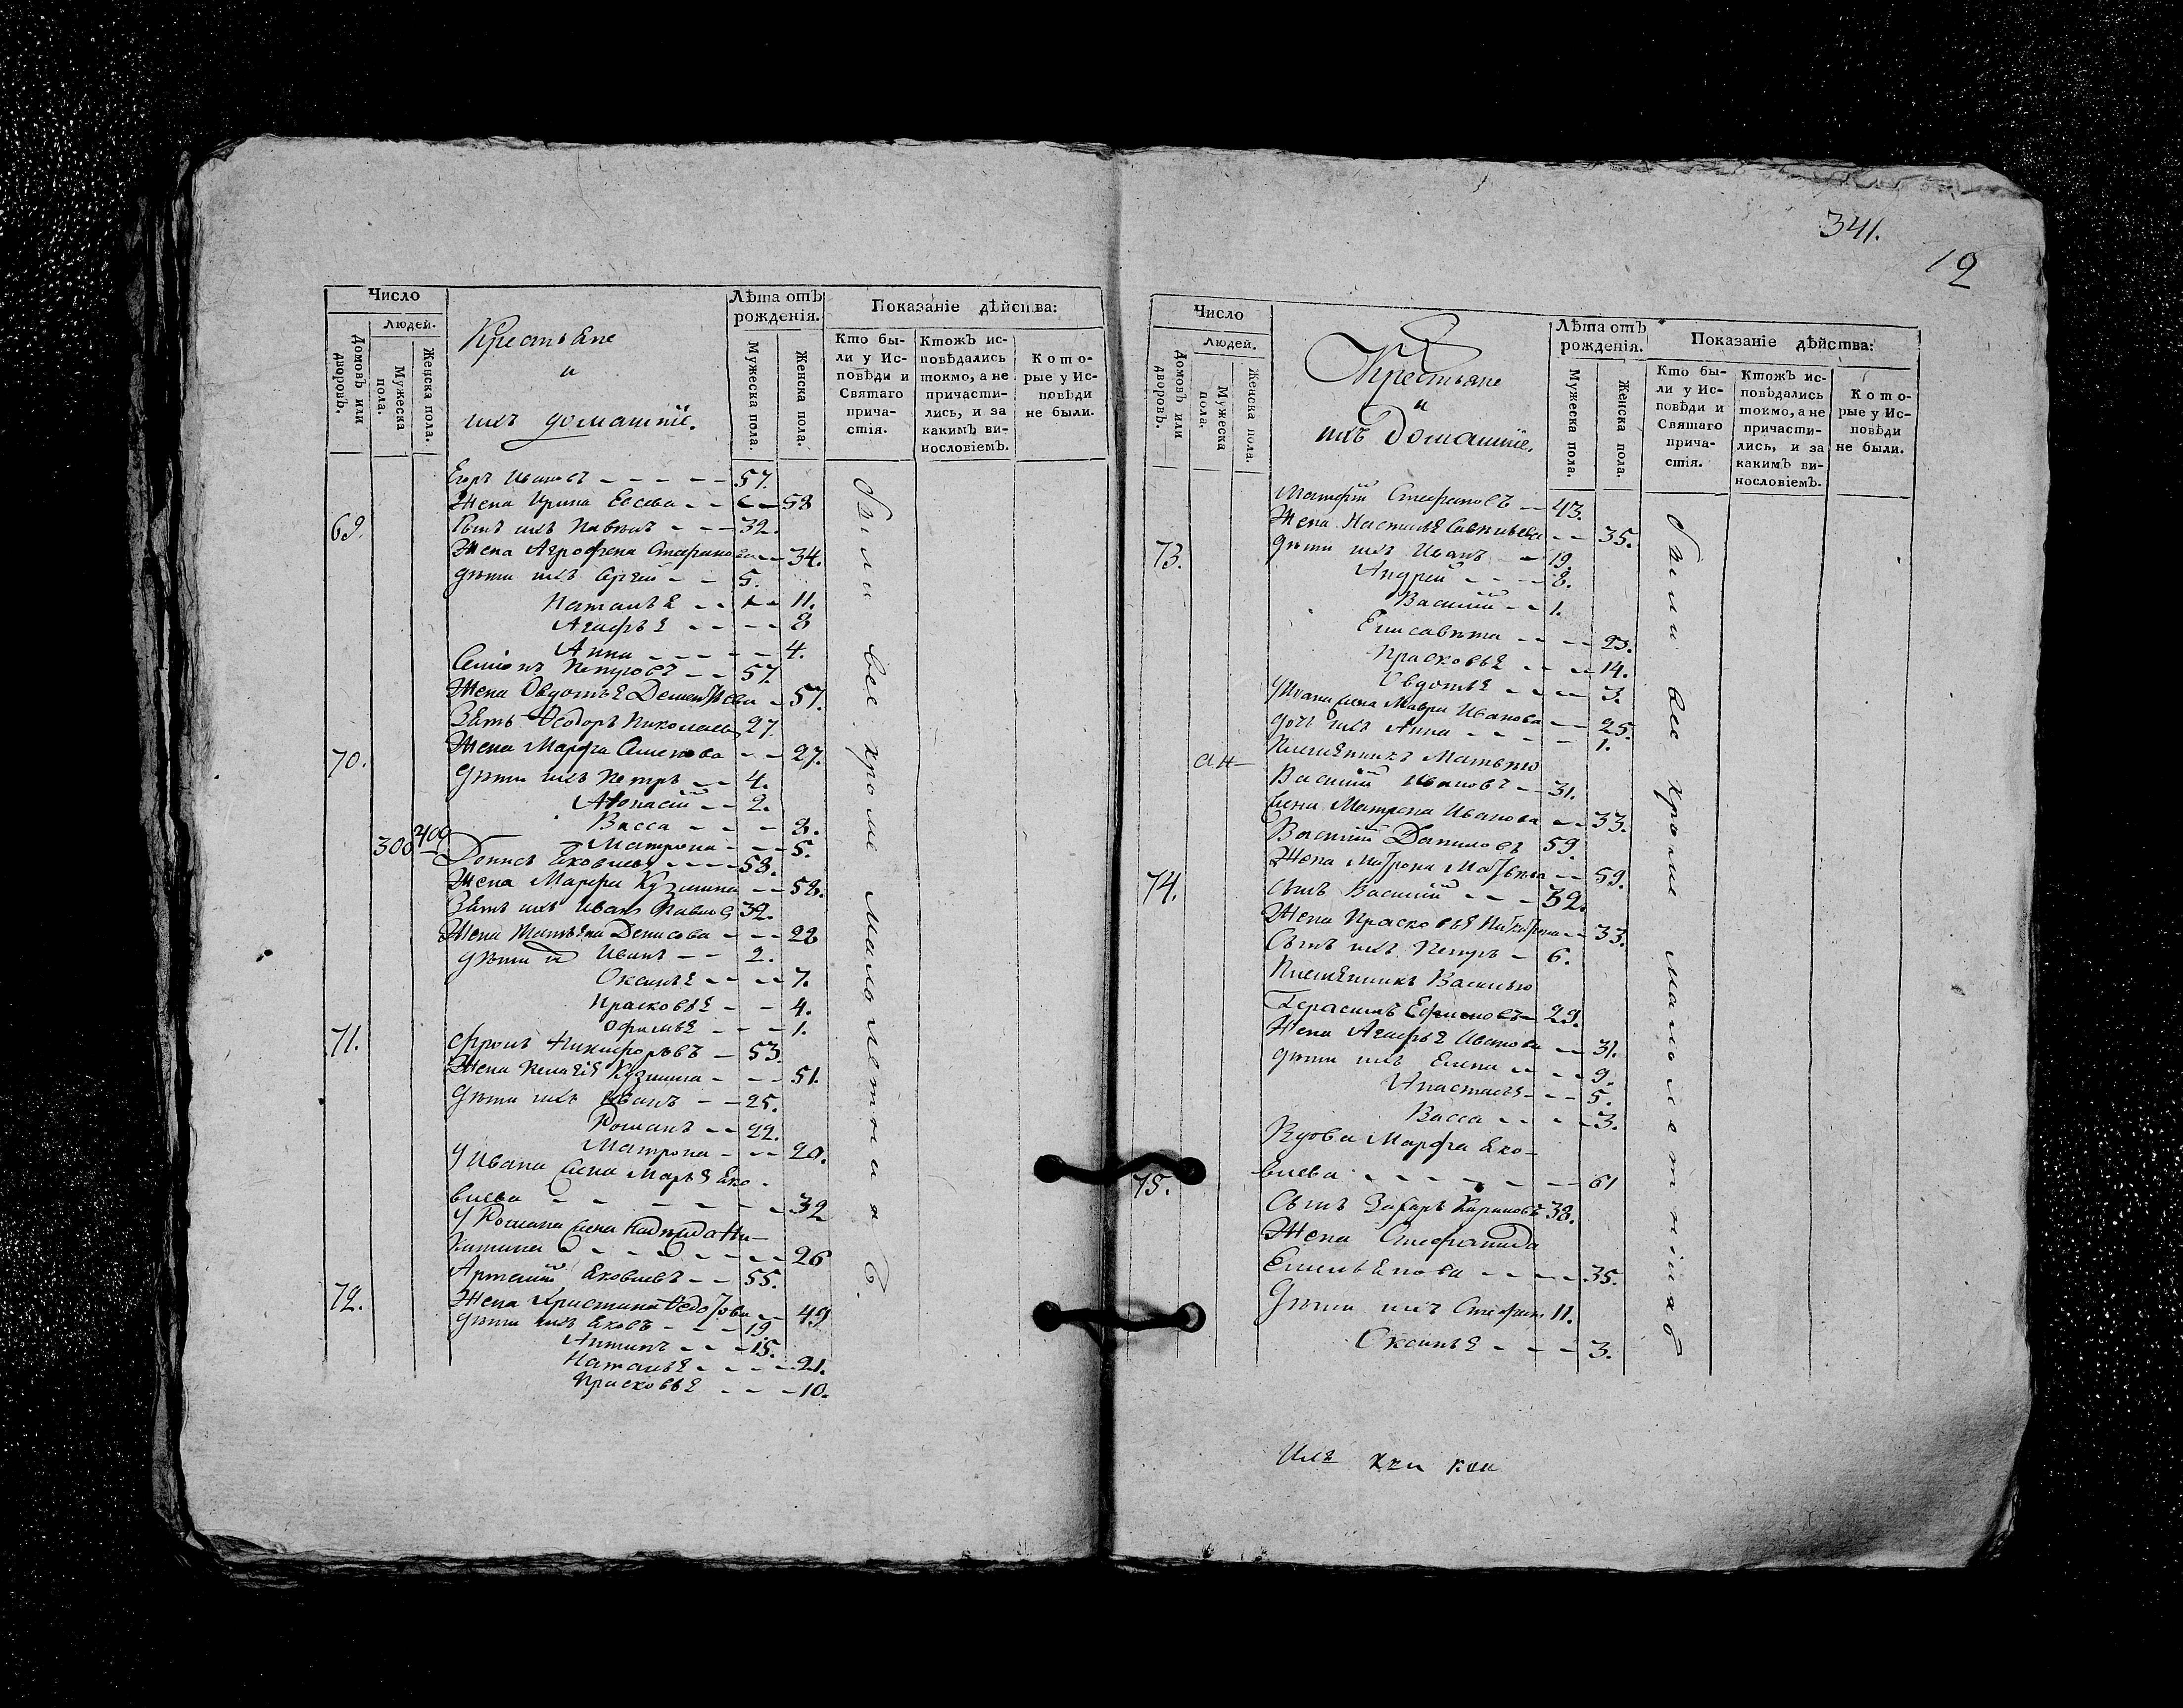 341.
12
Число
Людей.
Домовъ или дворовъ.
Мужеска пола.
Женска пола.
Крестьяне
и
ихъ домашніе.
Лѣта отъ рожденія.
Мужеска пола.
Женска пола.
Показаніе дѣйства:
Кто бы-
ли у Ис-
повѣди и
Святаго
прича-
стія.
Ктожъ ис-
повѣдались
токмо, а не
причасти-
лись, и за
какимъ ви-
нословіемъ.
Кото-
рые у Ис-
повѣди
не были.
Егоръ Ивановъ 57.
Жена Ирина Евсева 58
69. Сынъ ихъ Павелъ 32.
Жена Агрофена Стефанова 34.
Дѣти ихъ Сергей 5.
Наталья 11.
Агафья 8
Анна 4.
Семіонъ Петровъ 57.
Жена Овдотья Дементьева 57.
Зять Ѳеодоръ Николаевъ 27.
70. Жена Марфа Семенова 27.
Дѣти ихъ Петръ 4.
Аѳонасій 2.
Васса 8.
300 400
Матрона 5.
Денисъ Яковлевъ 58.
Жена Марфа Кузмина 58.
Зять ихъ Иванъ Павловъ 32.
Жена Татьяна Денисова 28
Дѣти Иванъ 2.
Оксинья 7.
Прасковья 4.
Офимья 1.
71. Фролъ Никифоровъ 53.
Жена Пелагія Кузмина 51.
Дѣти ихъ Иванъ 25.
Романъ 22.
Матрона 20.
У Ивана жена Марья Яко-
влева 32
У Романа жена Ни-
китина 26
Артемій Яковлевъ 55.
72. Жена Христина Ѳедорова 49
Дѣти ихъ Яковъ 19
Антипъ 15.
Наталья 21.
Прасковья 10.
были все кроме малолетнихъ.
Число
Людей.
Домовъ или дворовъ.
Мужеска пола.
Женска пола.
Крестьяне
и
ихъ домашніе.
Лѣта отъ рожденія.
Мужеска пола.
Женска пола.
Показаніе дѣйства:
Кто бы-
ли у Ис-
повѣди и
Святаго
прича-
стія.
Ктожъ ис-
повѣдались
токмо, а не
причасти-
лись, и за
какимъ ви-
нословіемъ.
Кото-
рые у Ис-
повѣди
не были.
Матфій Стефановъ 43.
Жена Настасья Савельева 35.
73. Дѣти ихъ Иванъ 19.
Андрей 8.
Василій 1.
Елисавѣта 23.
Прасковья 14.
Овдотья 3.
У Ивана жена Мавра Иванова 25.
Дочь ихъ Анна 1.
Племянникъ Матвѣю
Василій Ивановъ 31.
Жена Матрена Иванова 33.
Василій Даниловъ 59.
Жена Матрона Матвѣва 59.
74. Сынъ Василій 32.
Жена Прасковья 33.
Сынъ ихъ Петръ 6.
Племянникъ Василью
Герасимъ Ефимовъ 29.
Жена Агафья Иванова 31.
Дѣти ихъ Елена 9.
Анастасья 5.
Васса 3.
Вдова Марфа Яко-
75. влева 61
Сынъ Захаръ Карповъ 38.
Жена Стефанида
Емельянова 35.
Дѣти ихъ Стефанъ 11.
Оксинья 3.
были все кроме малолетнихъ